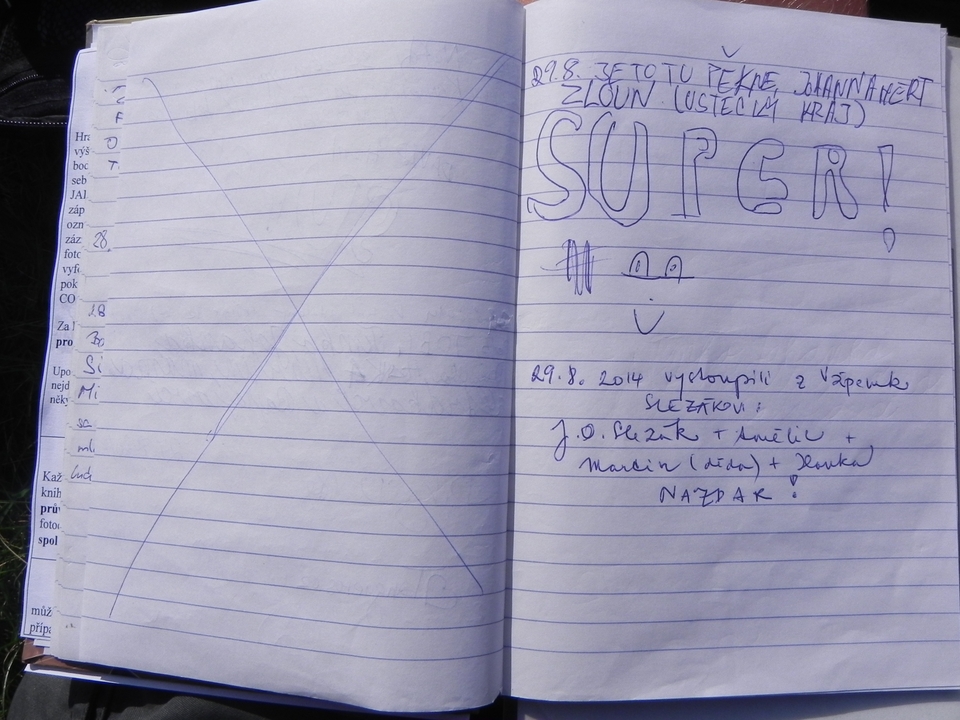 Hra
výš
boc
seb
JAI
záp
ozn
záz
foto
vyfo
pok
CO
Za l
pro
Upo
nejd
něky
Kaž
knih
prův
fotoc
spol
můž
přípa
28.
28
Bo
Si
Mi
sa
ml
29.8. JE TO TU PĚKNÉ, JOHANNA
(ÚSTECKÝ KRAJ)
SUPER!
29.8. 2014 vystoupili z
SLEZÁKOVI:
J.O. Slezák + Amélie +
Martin (děda) + Hanka
NAZDAR!